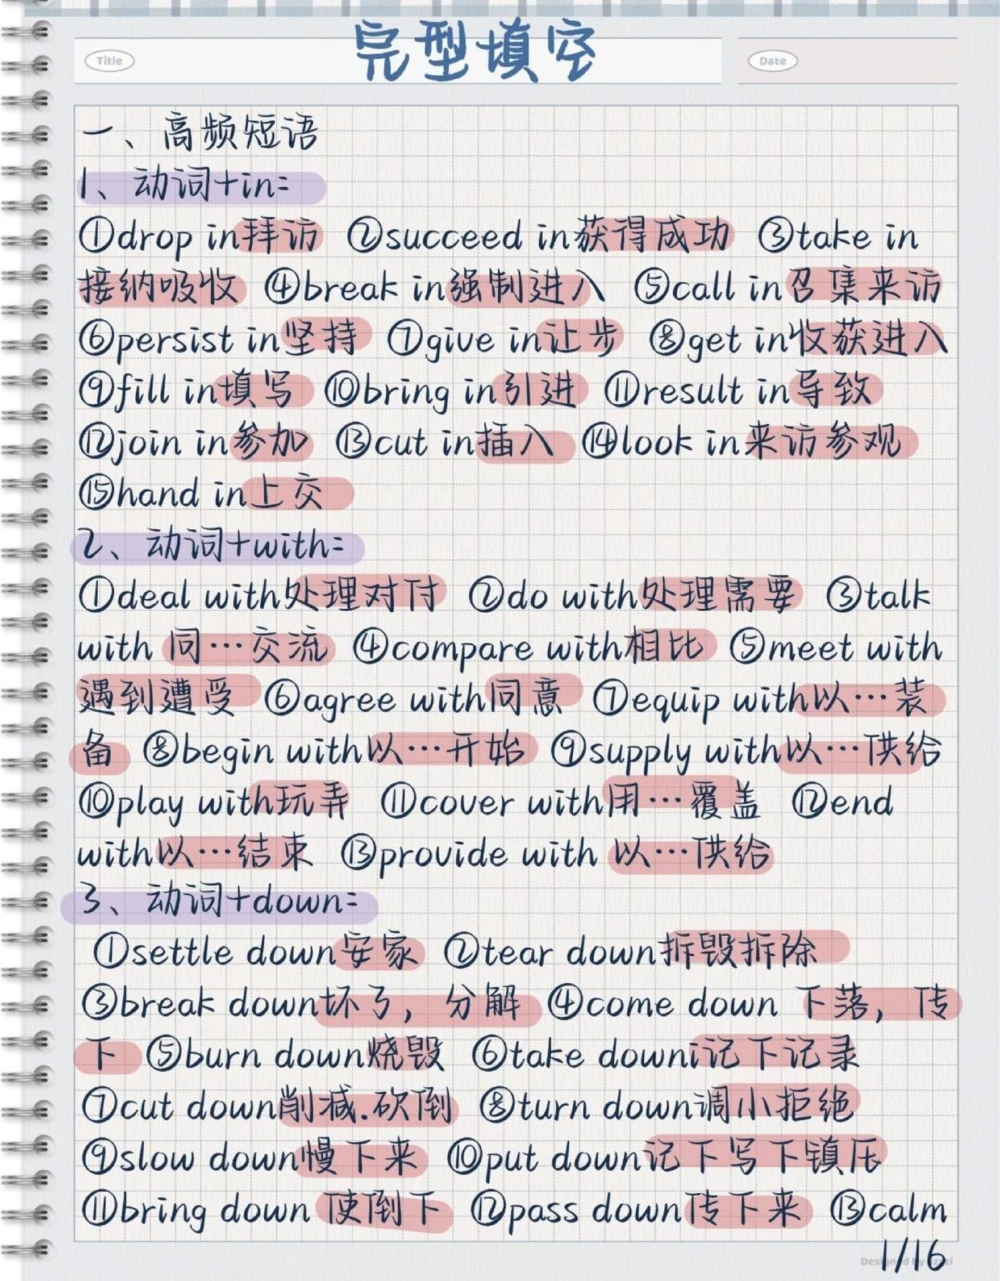 完型填空
Title
Date
一、高频短语
1、动词+in:
①drop in拜访 ②succeed in获得成功 ③take in
接纳吸收 ④break in强制进入 ⑤call in召集来访
⑥persist in坚持 ⑦give in让步 ⑧get in收获进入
⑨fill in填写 ⑩bring in引进 ⑪result in导致
⑫join in参加 ⑬cut in插入 ⑭look in来访参观
⑮hand in上交
2、动词+with:
①deal with处理对付 ②do with处理需要 ③talk
with 同…交流 ④compare with相比 ⑤meet with
遇到遭受 ⑥agree with同意 ⑦equip with以…装
备 ⑧begin with以…开始 ⑨supply with以…供给
⑩play with玩弄 ⑪cover with用…覆盖 ⑫end
with以…结束 ⑬provide with 以…供给
3、动词+down:
①settle down安家 ②tear down拆毁拆除
③break down坏了，分解 ④come down 下落，传
下 ⑤burn down烧毁 ⑥take down记下记录
⑦cut down削减.砍倒 ⑧turn down调小拒绝
⑨slow down慢下来 ⑩put down记下写下镇压
⑪bring down 使倒下 ⑫pass down传下来 ⑬calm
1/16